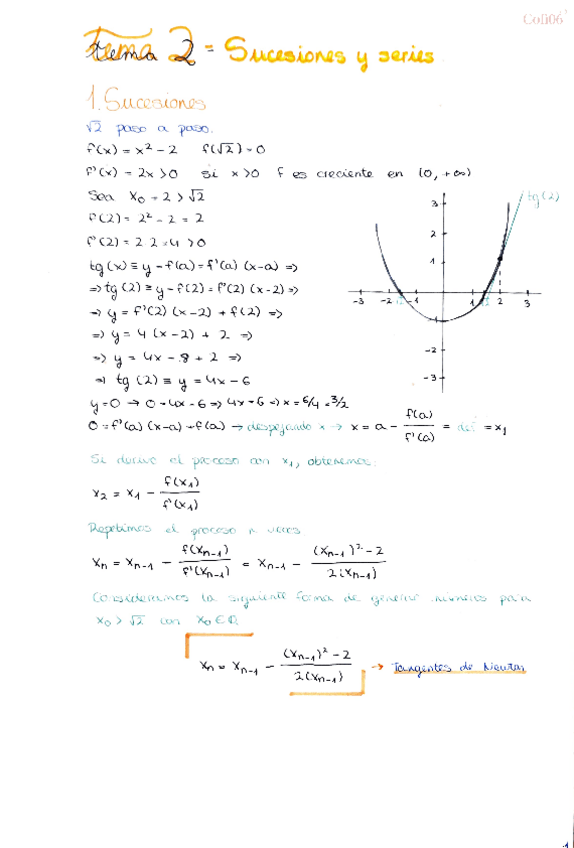 Coll06
Tema 2 = Sucesiones y series
1. Sucesiones
√2 paso a paso.
f(x) = x² - 2   f(√2) = 0
f'(x) = 2x > 0   si x > 0   f es creciente en (0, +∞)
Sea x₀ = 2 > √2
f(2) = 2² - 2 = 2
f'(2) = 2·2 = 4 > 0
tg(x) ≡ y - f(a) = f'(a) (x-a) =>
=> tg(2) ≡ y - f(2) = f'(2) (x-2) =>
=> y = f'(2) (x-2) + f(2) =>
=> y = 4 (x-2) + 2 =>
=> y = 4x - 8 + 2 =>
=> tg (2) ≡ y = 4x - 6
y = 0 → 0 = 4x - 6 => 4x = 6 => x = 6/4 = 3/2
0 = f'(a) (x-a) + f(a) → despejando x → x = a - f(a)/f'(a) = def = x₁
tg(2)
3
2
1
-3 -2 -1 1 2 3
-2
-3
Si el proceso con x₁, obtenemos:
x₂ = x₁ - f(x₁)/f'(x₁)
Repetimos el proceso n veces
xₙ = xₙ₋₁ - f(xₙ₋₁)/f'(xₙ₋₁) = xₙ₋₁ - (xₙ₋₁)² - 2/2(xₙ₋₁)
Consideramos la siguiente forma de generar números para
x₀ > √2 con x₀ ∈ ℚ
xₙ = xₙ₋₁ - (xₙ₋₁)² - 2/2(xₙ₋₁) → Tangentes de Newton
1